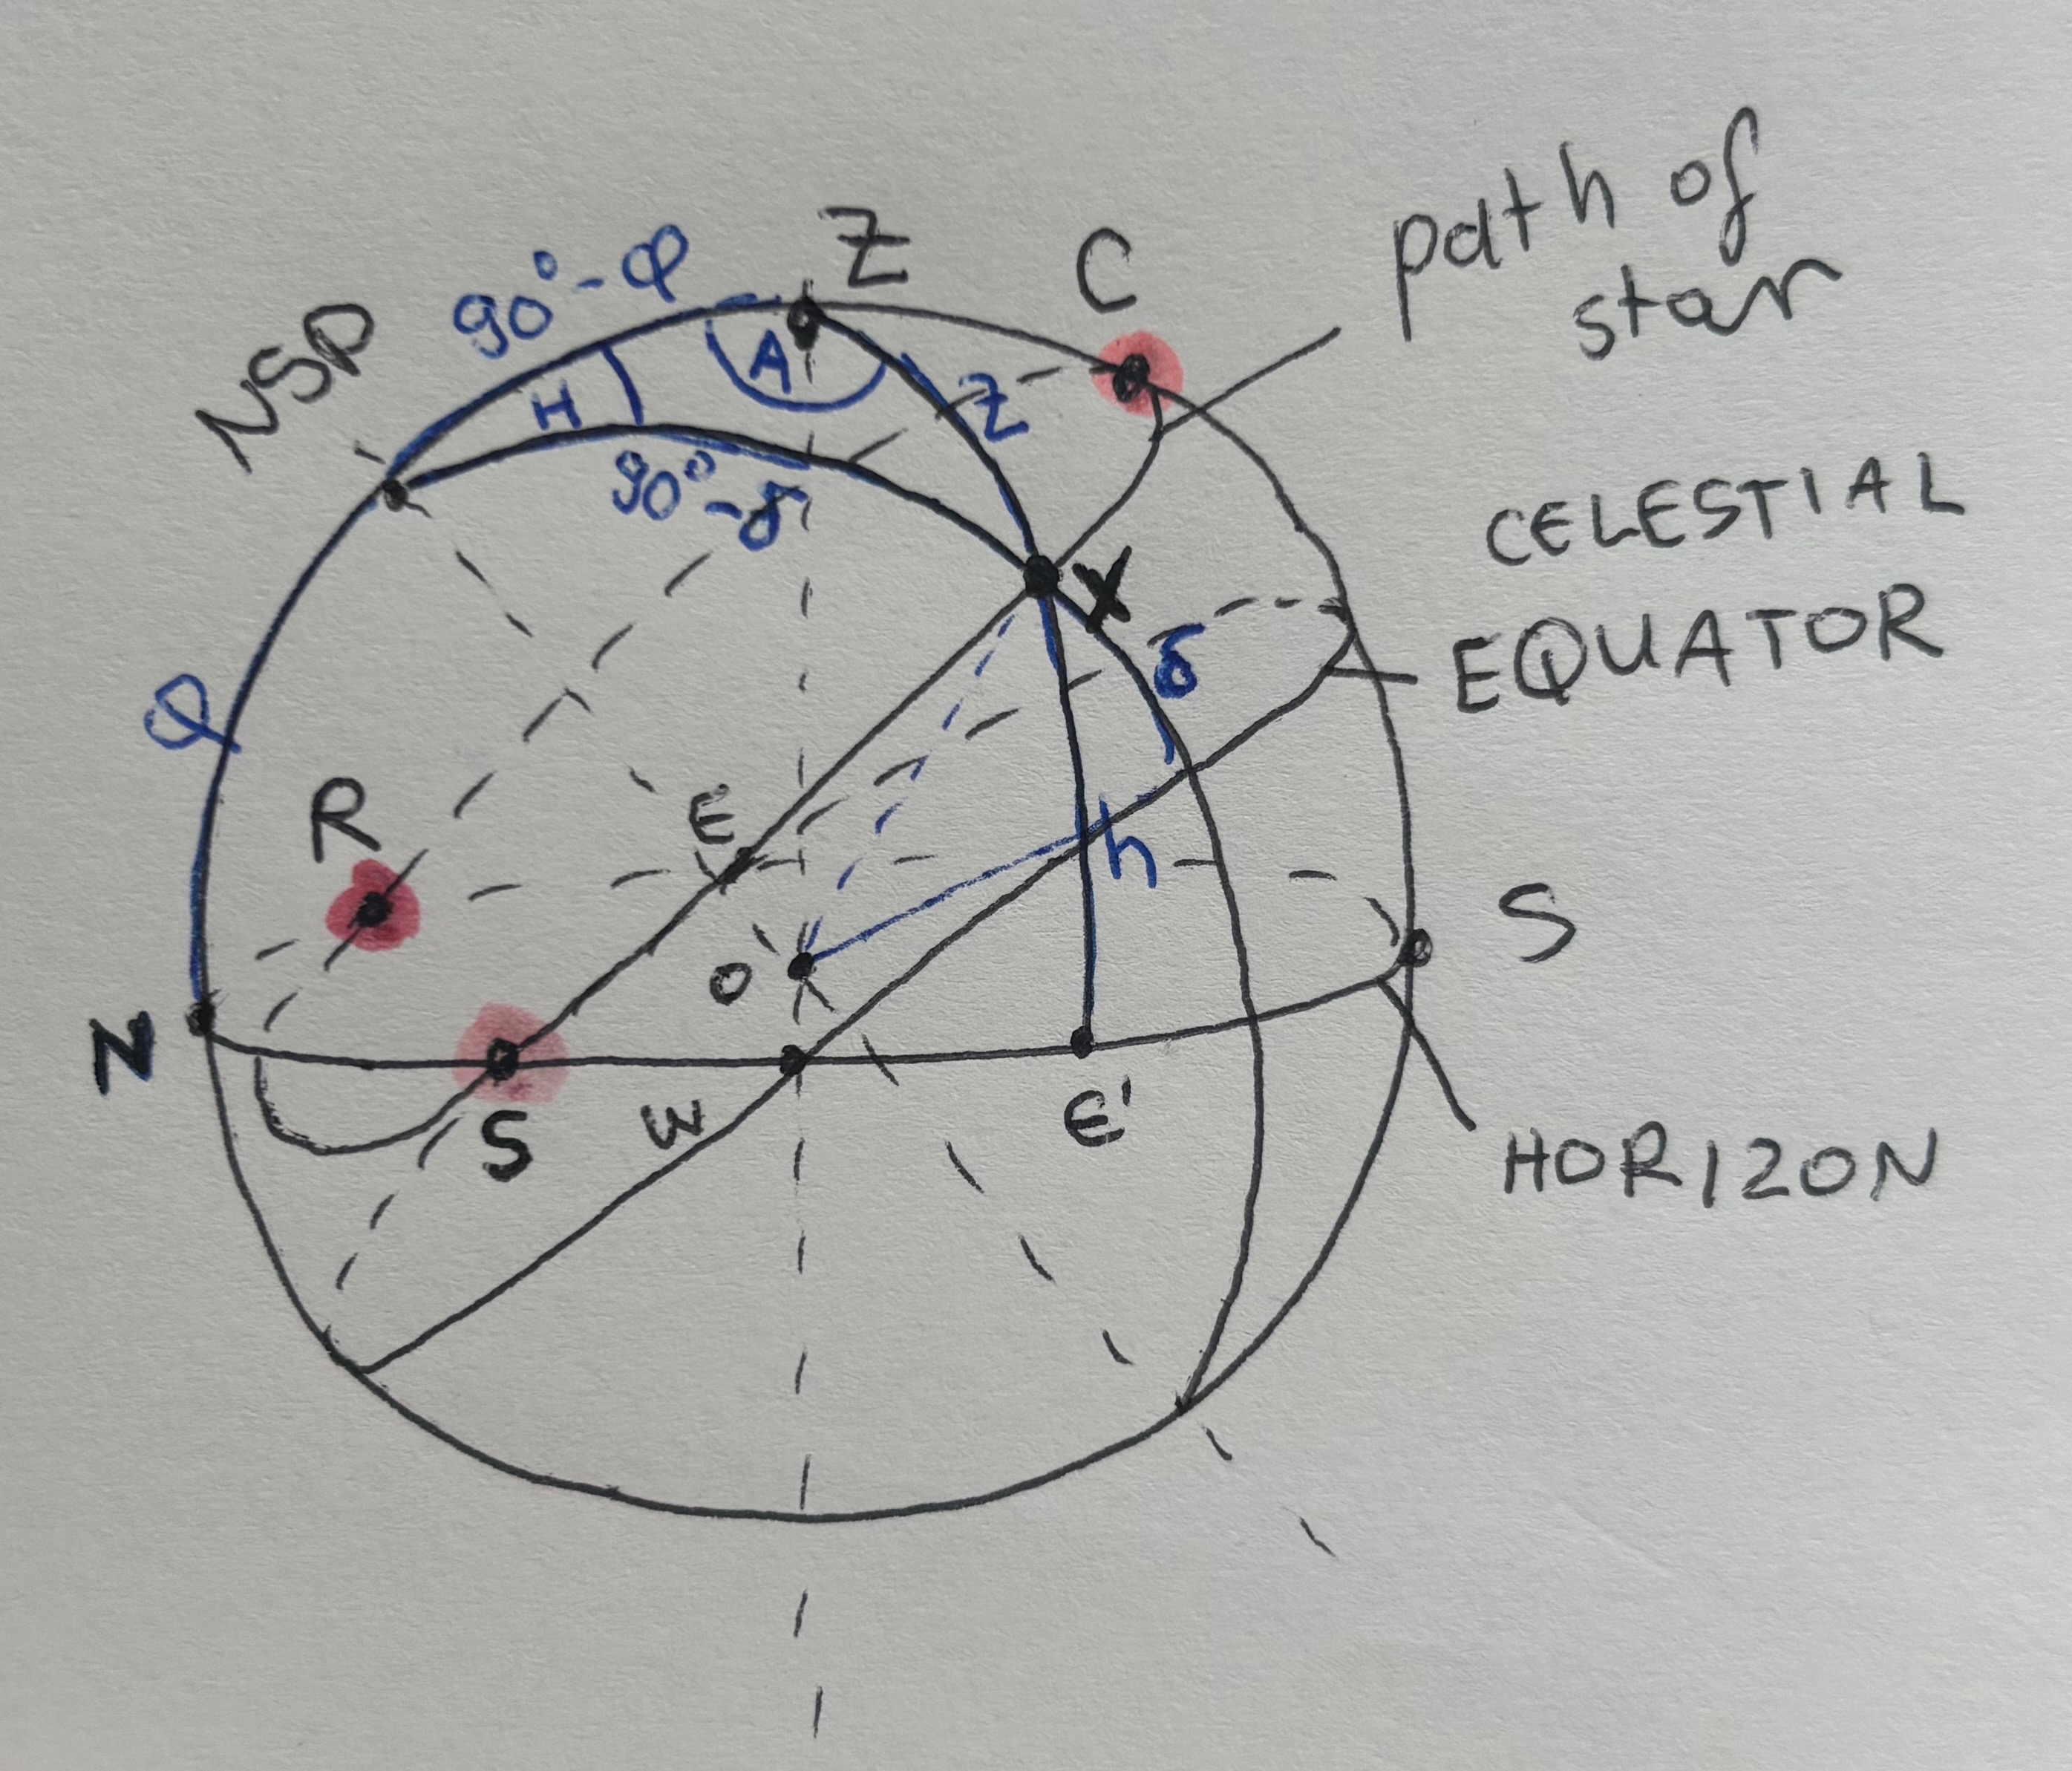 path of
star
Z
C
90°-φ
NSP
A
H
z
90°-δ
CELESTIAL
EQUATOR
X
δ
φ
R
E
h
S
O
N
S
W
E'
HORIZON